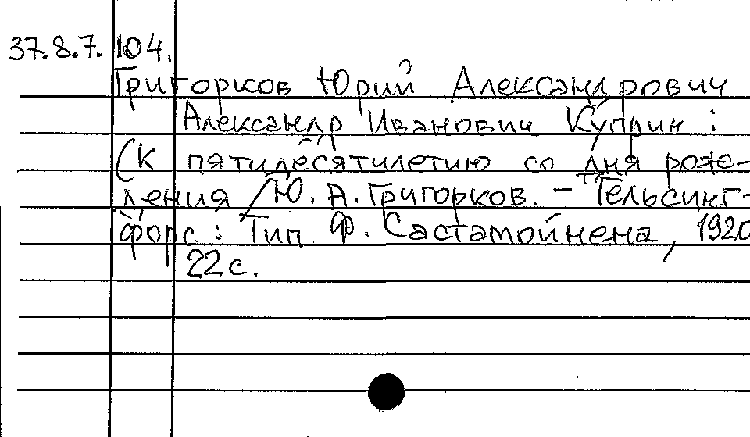 37.8.7.104.
Григорков Юрий Александрович
Александр Иванович Куприн :
(К пятидесятилетию со дня рож-
дения / Ю. А. Григорков. - Гельсинг-
форс : Тип Ф. Састамойнена, 1920
22 с.